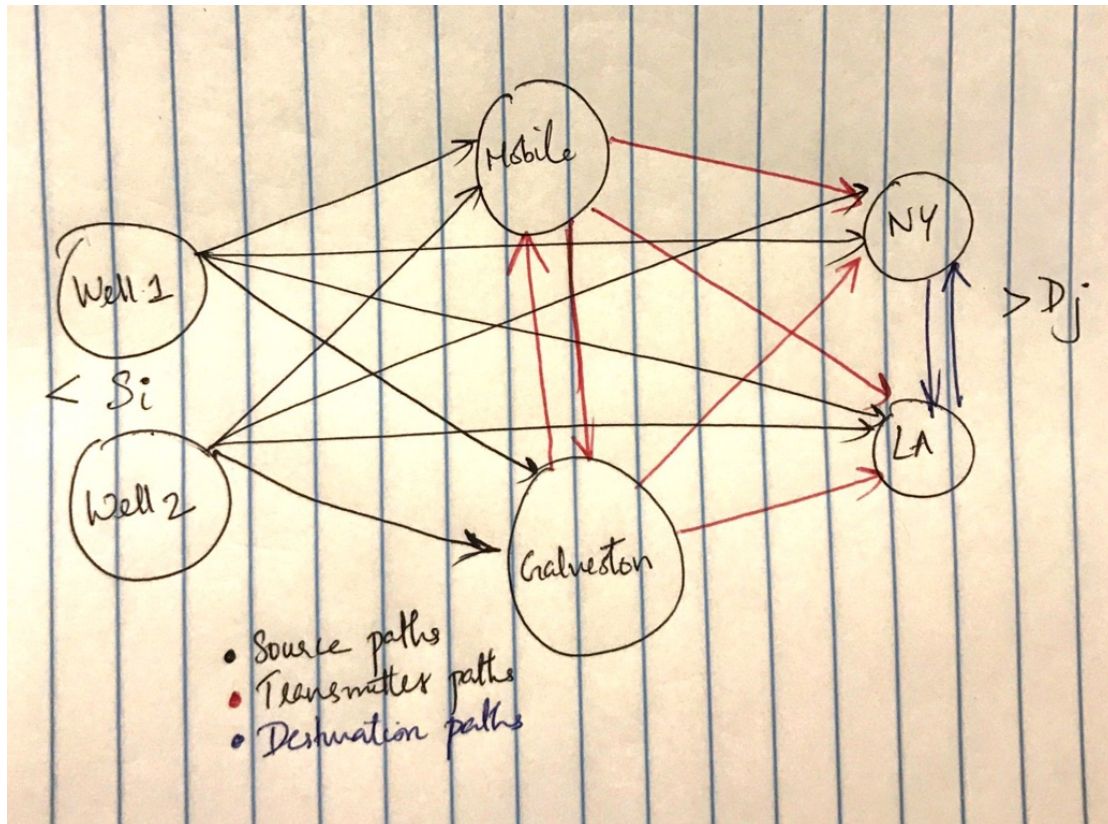 Mobile
NY
Well 1
> Dj
< Si
LA
Well 2
Galveston
• Source paths
• Transmitter paths
• Destination paths